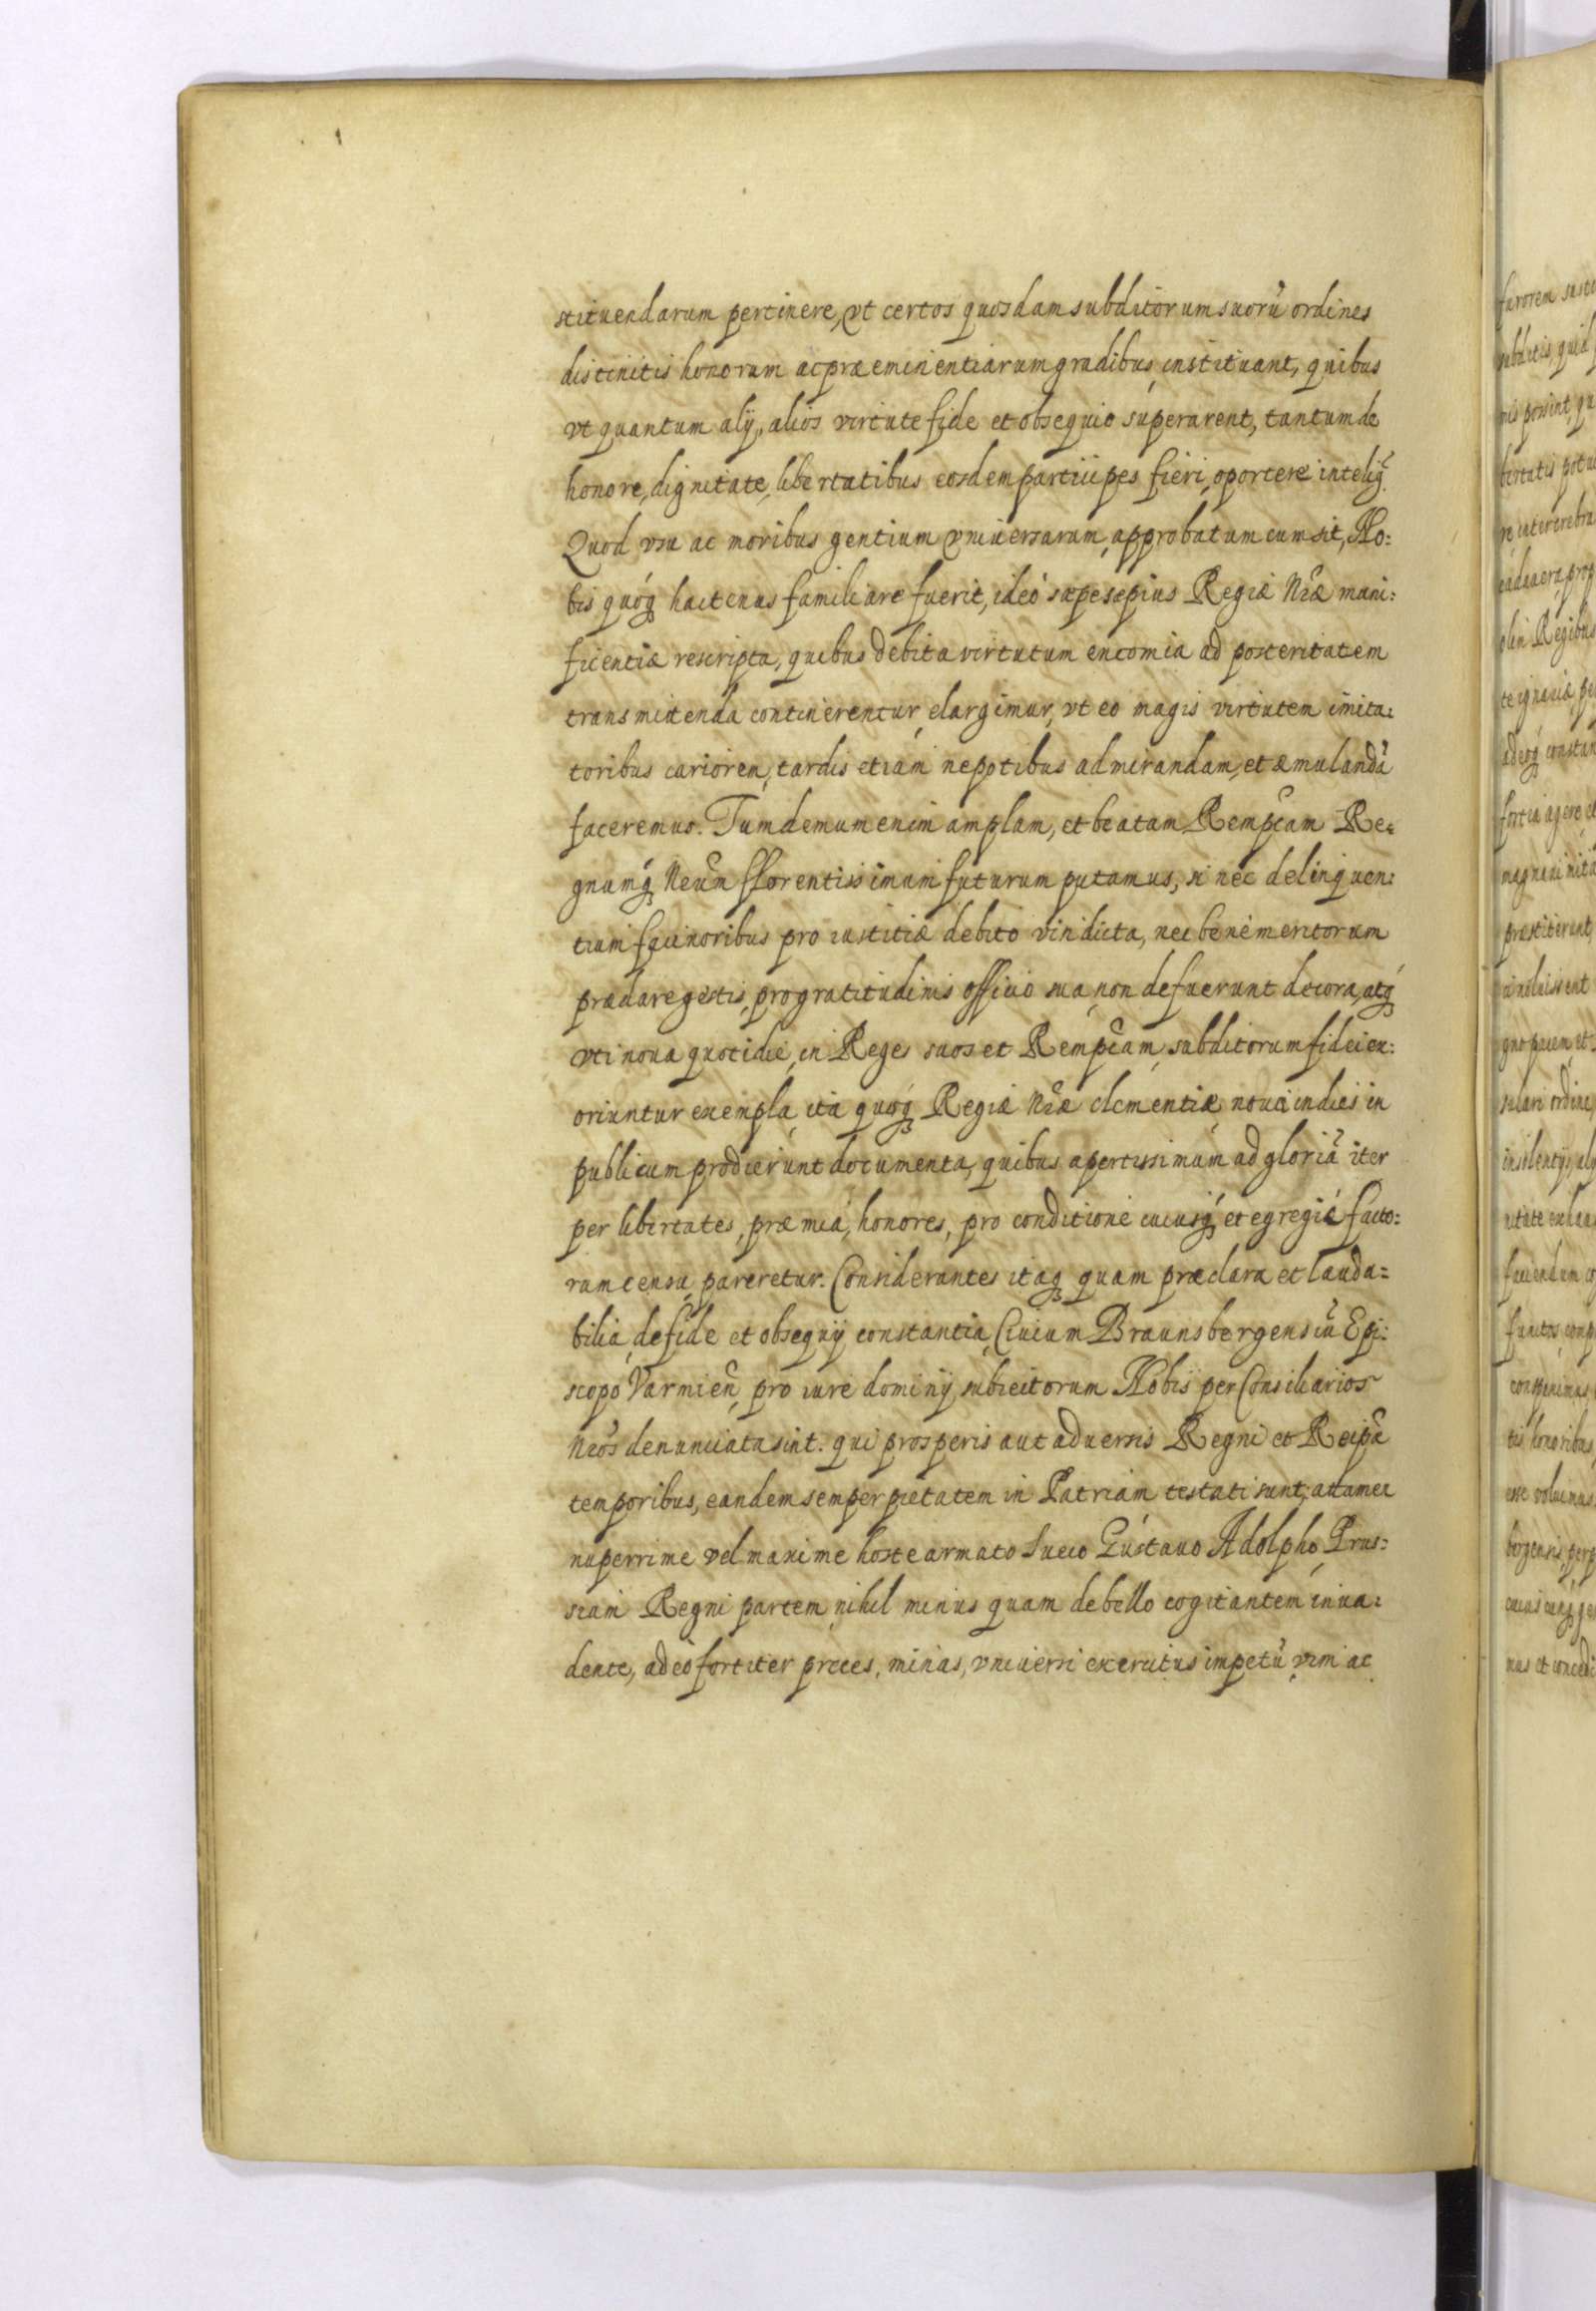 stituendarum pertinere, vt certos quosdam subditorum suorũ ordines
distinctis honorum ac præeminentiarum gradibus instituant, quibus
vt quantum alij, alios virtute fide et obsequio superarent, tantum de
honore, dignitate, libertatibus eosdem participes fieri, oportere intelig̃
Quod vsu ac moribus gentium vniuersarum, approbatum cum sit, No:
bis quoq́ꝫ hactenus familiare fuerit, ideò sæpe sæpius Regiæ Nr̃æ muni:
ficentiæ rescripta, quibus debita virtutum encomia ad posteritatem
transmittenda continerentur, elargimur, vt eo magis virtutem imita:
toribus cariorem, tardis etiam nepotibus admirandam, et æmulandã
faceremus. Tum demum enim amplam, et beatam Rempc̃am Re:
gnumq́ꝫ Nr̃um florentissimum futurum putamus, si nec delinquen:
tium facinoribus pro iustitiæ debito vindicta, nec bene meritorum
præclare gestis, pro gratitudinis officio sua non defuerunt decora, atq́ꝫ
vti noua quotidie, in Reges suos et Rempc̃am, subditorum fidei ex:
oriuntur exempla, ita quoq́ꝫ Regiæ Nr̃æ clementiæ noua indies in
publicum prodierunt documenta, quibus apertissimum ad gloriã iter
per libertates, præmia, honores, pro conditione cuiusq́ꝫ et egregiè facto:
rum censu, pareretur. Considerantes itaqꝫ quam præclara et lauda=
bilia, de fide et obsequij constantia, Ciuium Braunsbergensiũ Epi:
scopo Varmieñ, pro iure dominij subiectorum Nobis per Consiliarios
Nr̃os denunciata sint. qui prosperis aut aduersis Regni et Reipc̃æ
temporibus, eandem semper pietatem in Patriam testati sunt, attamen
nuperrime vel maxime hoste armato Sueco Gustauo Adolpho Prus:
siam Regni partem, nihil minus quam de bello cogitantem inua:
dente, adeò fortiter preces, minas, vniuersi exercitus impetũ vim ac